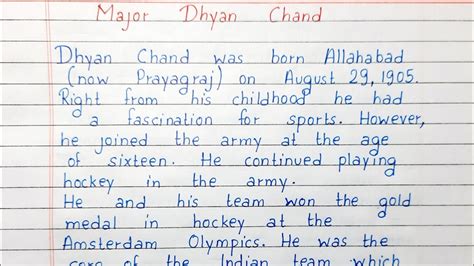 Major Dhyan Chand
Dhyan Chand was born Allahabad
(now Prayagraj) on August 29, 1905.
Right from his childhood he had
a fascination for sports. However,
he joined the army at the age
of sixteen. He continued playing
hockey in the army.
He and his team won the gold
medal in hockey at the
Amsterdam Olympics. He was the
core of the Indian team which